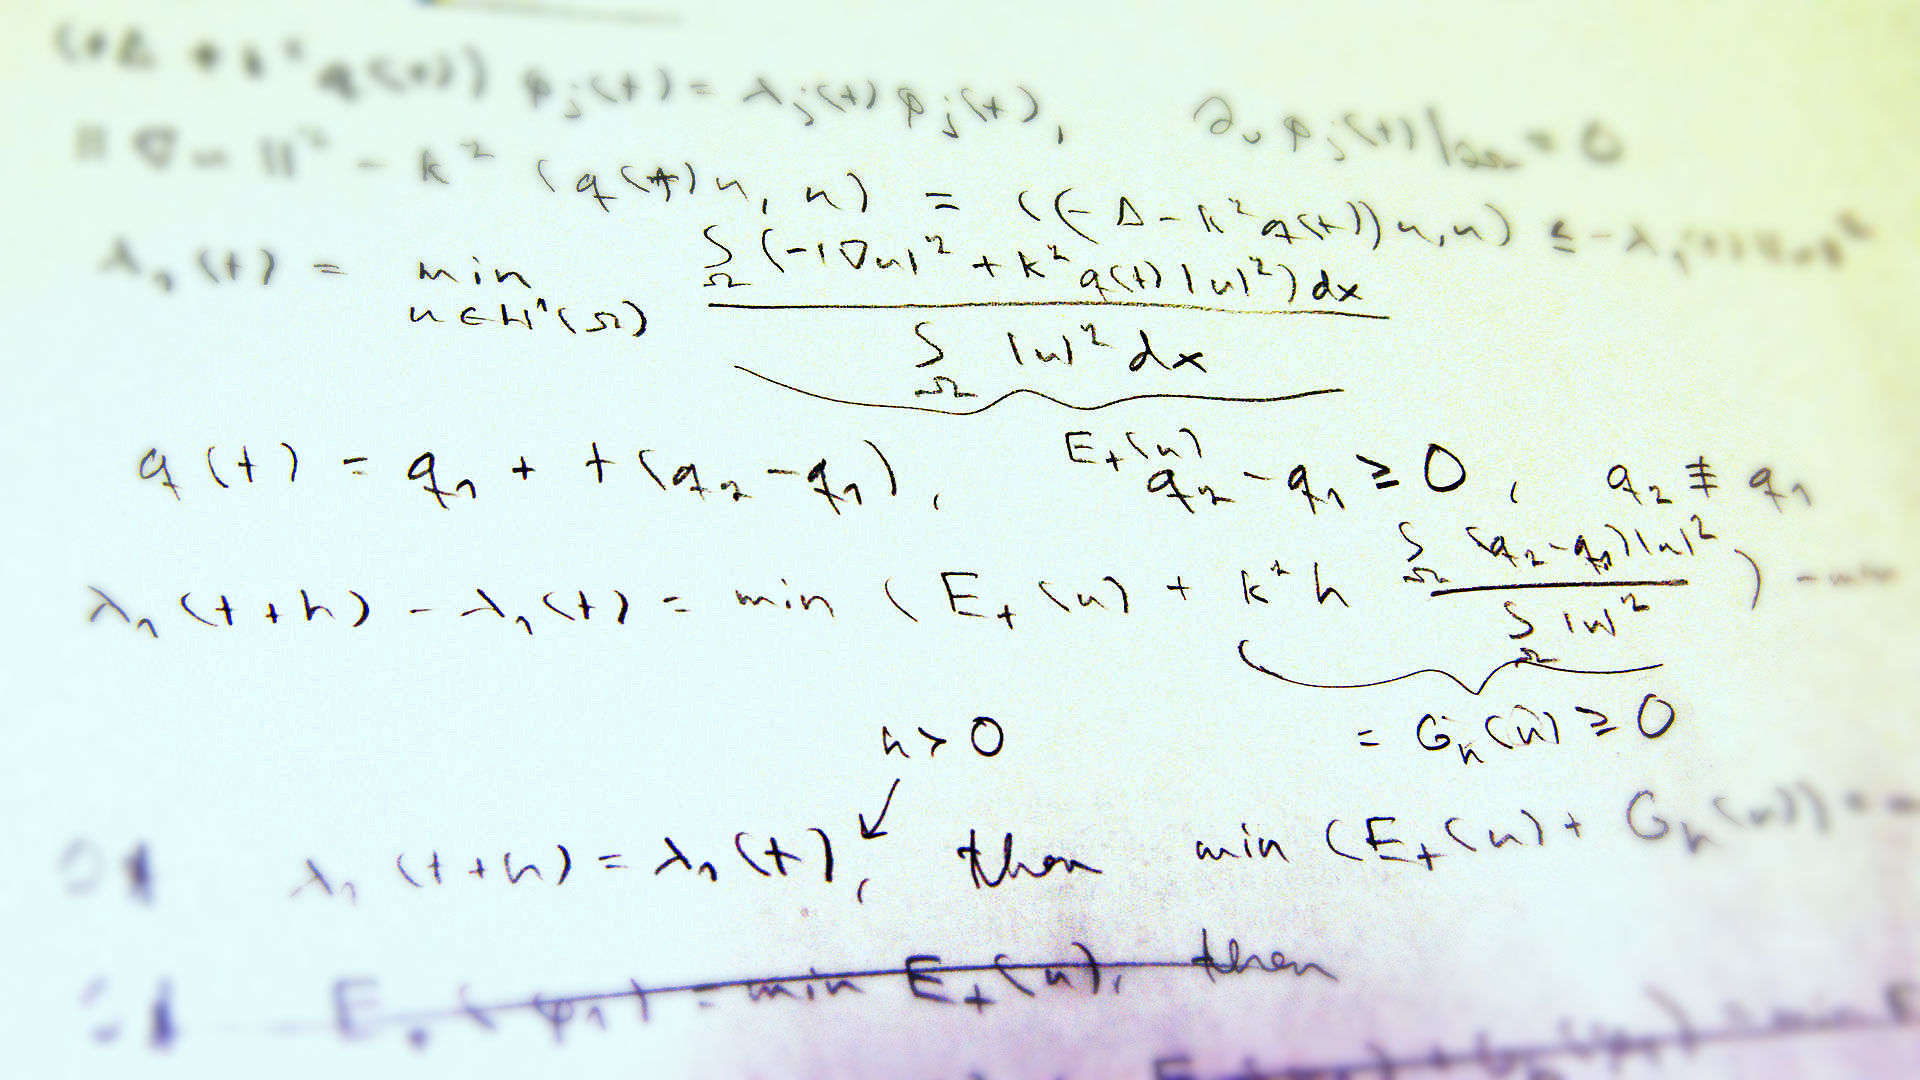 (+Δ + k² q(t)) φ_j(t) = λ_j(t) φ_j(t), ∂_ν φ_j(t)|_∂Ω = 0
||∇u||² - k² (q(t)u, u) = ((-Δ - k² q(t))u, u) ≤ -λ₁(t)||u||²
λ₁(t) = min_{u∈H¹(Ω)} ∫_Ω (-|∇u|² + k² q(t)|u|²) dx / ∫_Ω |u|² dx
E_t(u)
q(t) = q₁ + t(q₂ - q₁), q₂ - q₁ ≥ 0, q₂ ≢ q₁
λ₁(t+h) - λ₁(t) = min (E_t(u) + k² h ∫_Ω (q₂-q₁)|u|² / ∫_Ω |u|²) -
= G_h(u) ≥ 0
h > 0
λ₁(t+h) = λ₁(t), then min (E_t(u) + G_h(u)) =
E_t(φ₁) = min E_t(u), then